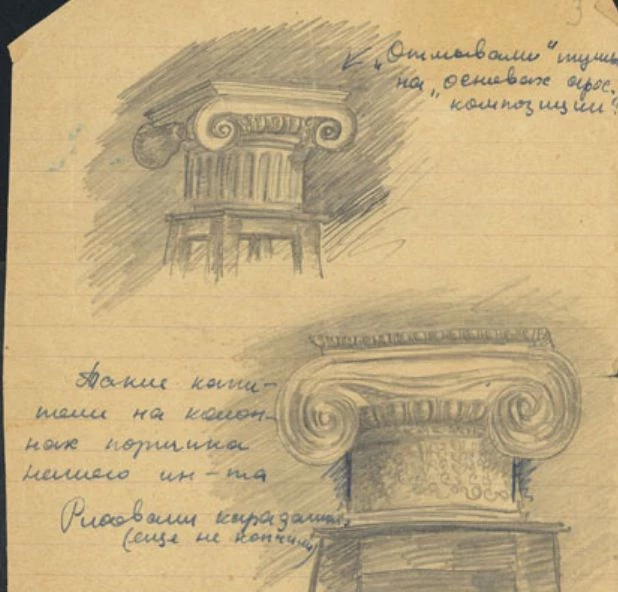 3
„Отмывали“ тушью
на „основах арх.
композиции“
Такие капи-
тели на колон-
нах портика
нашего ин-та
Рисовали карандашом
(еще не кончили)